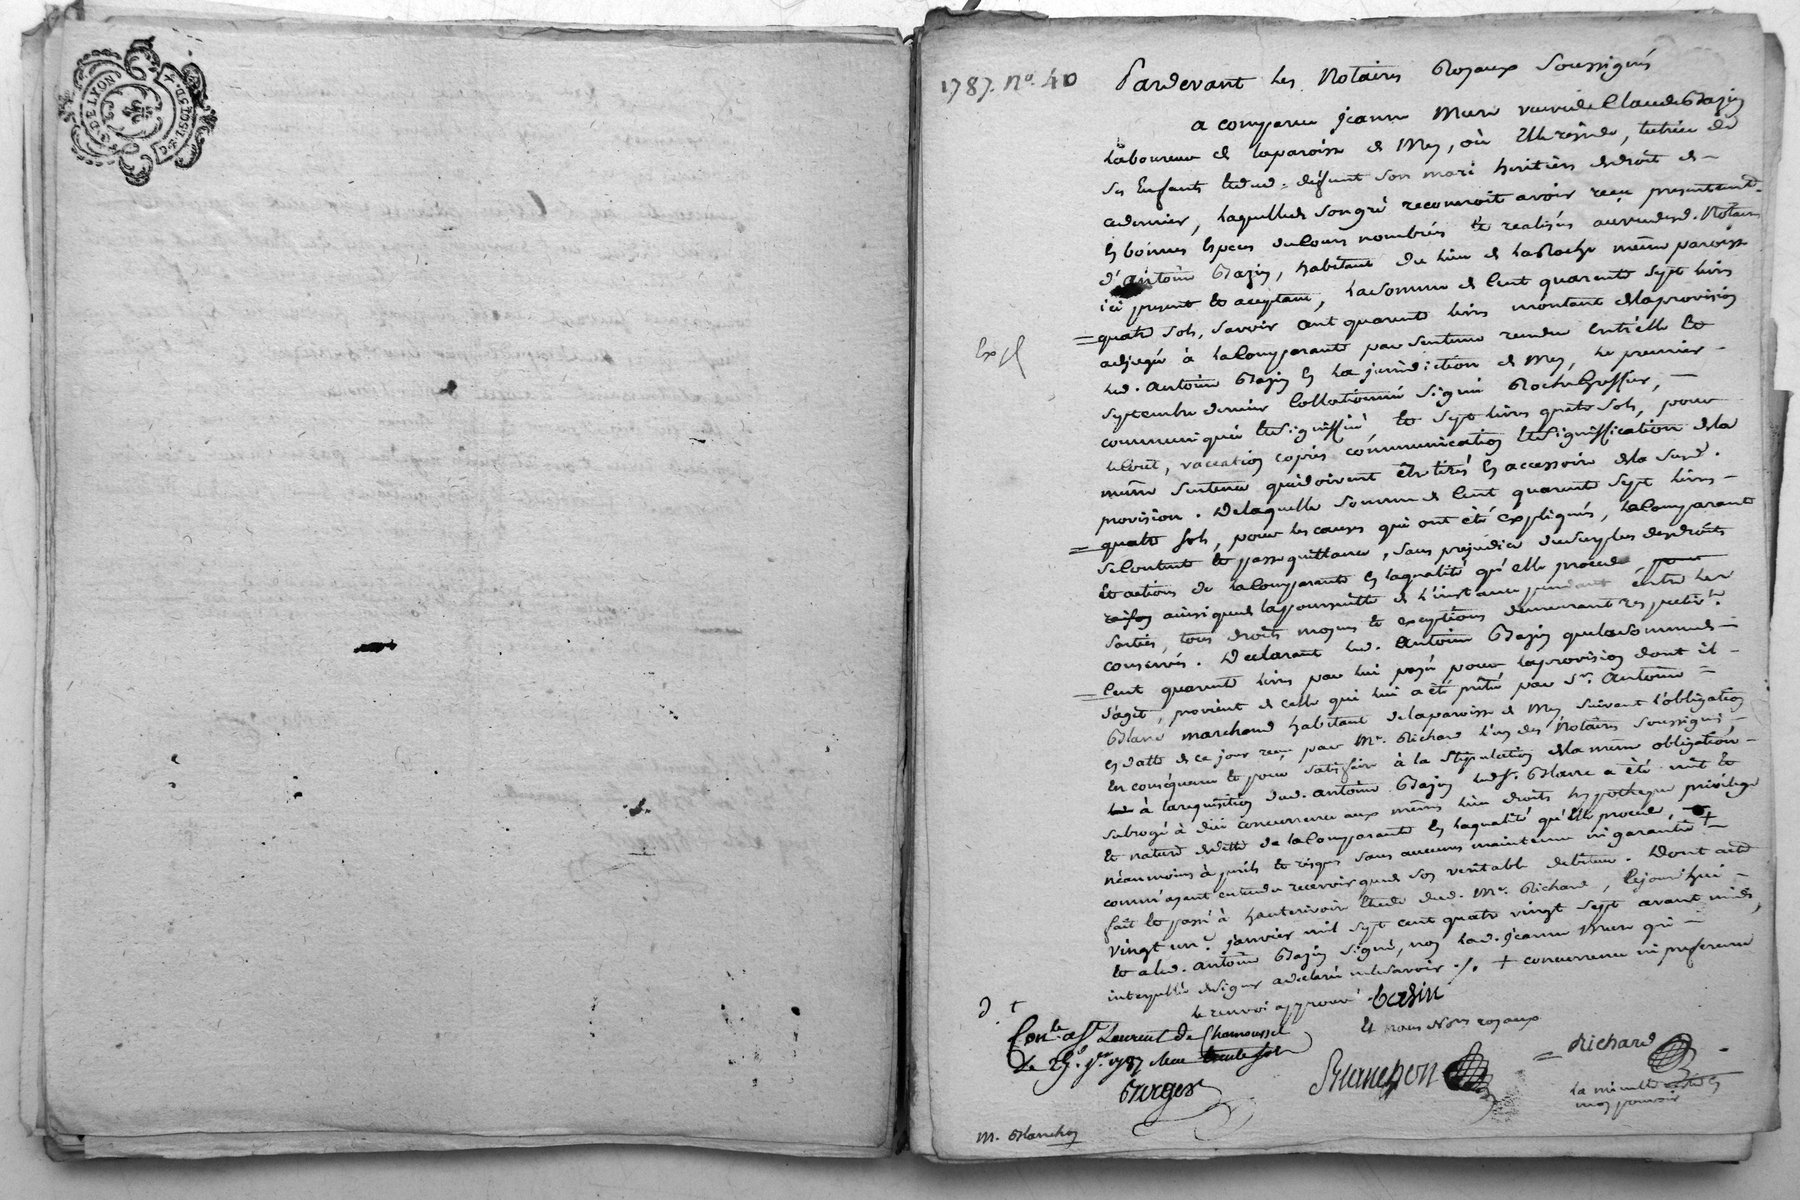 G. DE LYON
1787. n.o 40
Pardevant les Notaires Royaux Soussignés
a comparu Jeanne Mure veuve de Claude Bazin
laboureur de la paroisse de Mey, où Elle réside, tutrice de
ses Enfants & dud. défunt son mari héritiers de droit de
ce dernier, laquelle de son gré reconnoit avoir reçu présentemt.
en bonnes Espèces de Cours nombrées & réalisées au vu desd. Notaires
d'Antoine Bazin, habitant du lieu de la Roche même paroisse
ici présent & acceptant, la somme de Cent quarante sept livres
quatre sols, savoir cent quarante livres montant de la provision
adjugée à la Comparante par sentence rendue entr'elle &
led. Antoine Bazin en la jurisdiction de Mey, le premier
septembre dernier Collationné signé Rochegressier,
communiquée & signiffiée, & sept livres quatre sols, pour
le Cout, vaccation copies communication & signiffication de la
même sentence qui doivent être tirés en accessoire de la susd.
provision. De laquelle somme de Cent quarante sept livres
quatre sols, pour les causes qui ont été expliquées, la Comparante
se Contente & passe quittance, sans préjudice du surplus des droits
& actions de la Comparante en la qualité qu'elle procede,
ainsi que de la poursuitte de l'instance pendante entre les
parties, tous droits moyens & exceptions demeurant respectivt.
conservés. Déclarant led. Antoine Bazin que la somme de
Cent quarante livres par lui payée pour la provision dont il
s'agit, provient de celle qui lui a été prêtée par Sr. Antoine
Blanc marchand habitant de la paroisse de Mey suivant l'obligation
en datte de ce jour reçue par Me. Richard l'un des Notaires soussignés
En conséquence & pour satisfaire à la Stipulation de la même obligation
à la requisition dud. Antoine Bazin led. Sr. Blanc a été mis &
subrogé à due concurrence aux mêmes lieu droits hypotheque privilege
& nature de dette de la Comparante en la qualité qu'Elle procede, +
néanmoins à périls & risques sans aucune maintenue ni garantie
comm'ayant entendu recevoir que de son véritable débiteur. Dont acte
fait & passé à hauterivoire Etude dud. Me. Richard, Cejourd'hui
vingt un janvier mil sept cent quatre vingt sept avant midi,
& a led. Antoine Bazin signé, non lad. Jeanne Mure qui
interpellée de signer a déclaré ne le savoir ./. + concurrence ni preference
le renvoi approuvé
Bazin
Et nous Nors royaux
Conle. a St. Laurent de Chamousset
Le 29. Jer. 1787
Blanchon
Richard
la minutte
mon pouvoir
M. Blanchon